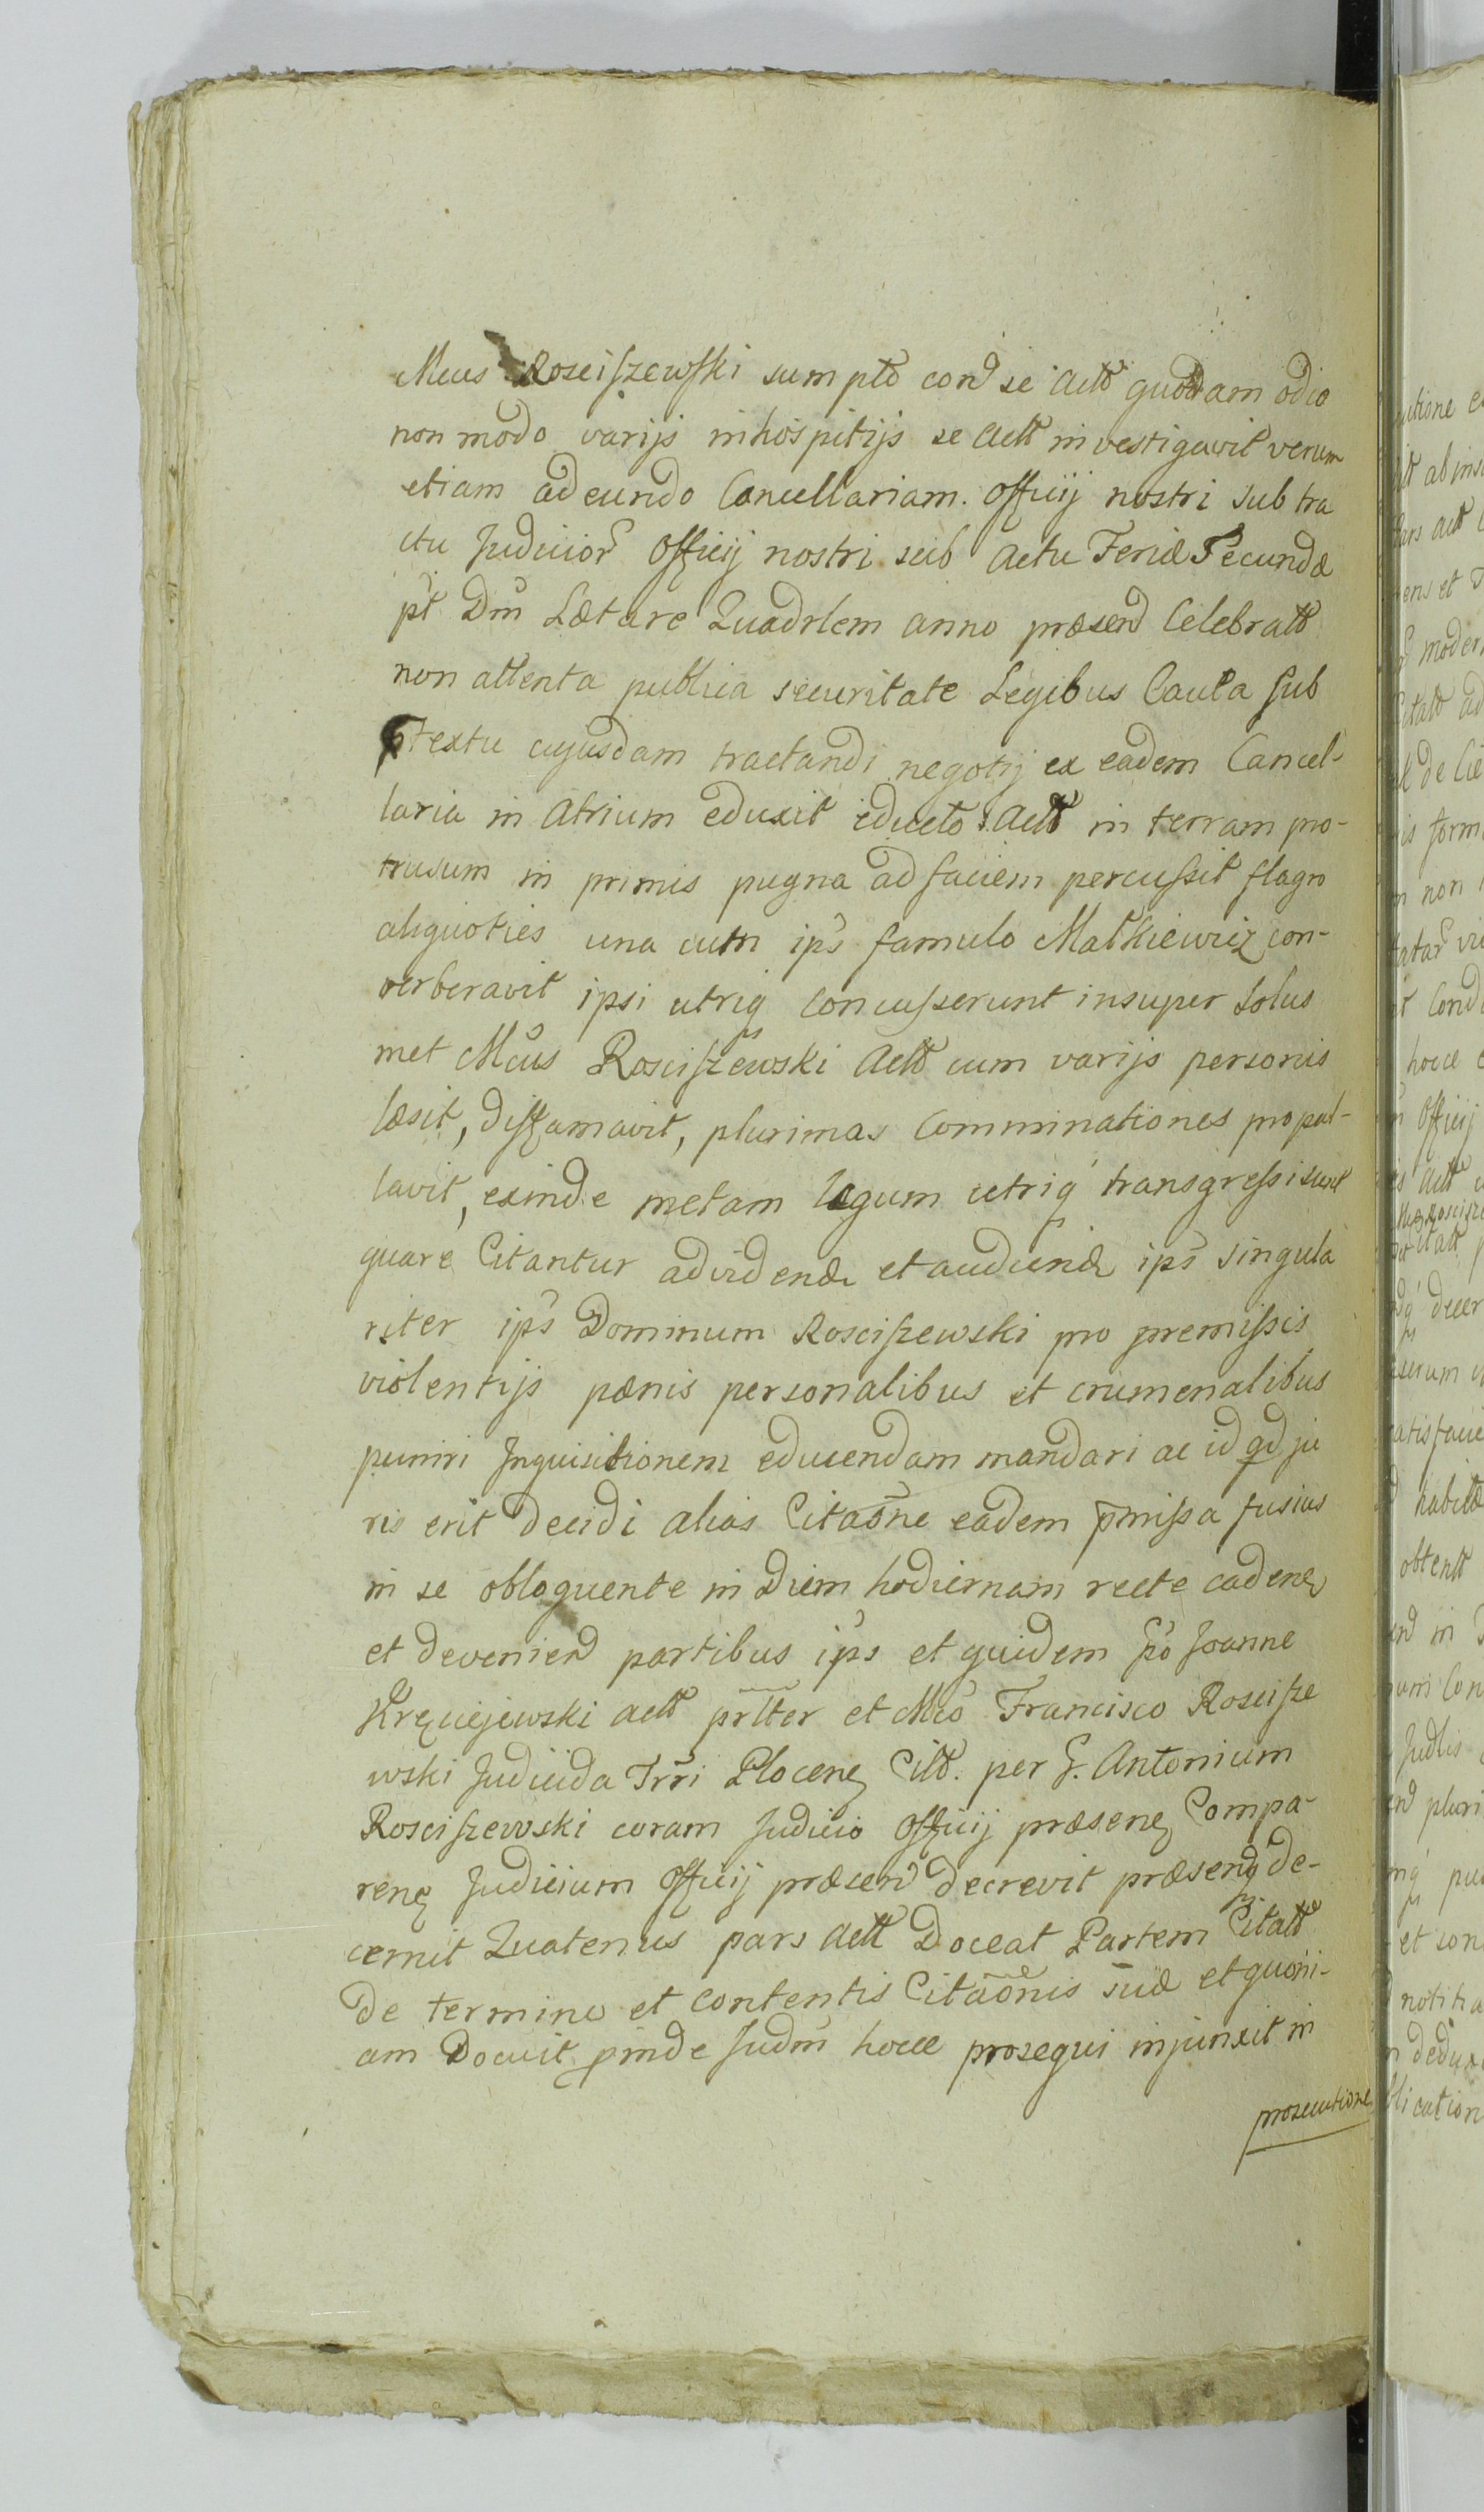 Mcus Rosciszewski sumpto cond se Actt quodam odio
non modo varijs inhospitijs se Actt investigavit verum
etiam adeundo Cancellariam. Officij nostri sub tra
ctu Judicior Officij nostri sub Actu Feriæ Secundæ
pt Dm Lætare Quadrlem anno præsend Celebratt
non attenta publica securitate Legibus Cauta sub
ptextu cujusdam tractandi negotij ex eadem Cancel-
laria in Atrium eduxit educto Actt in terram pro-
trusum in primis pugna ad faciem percussit flagro
aliquoties una cum ips famulo Matkiewicz con-
verberavit ipsi utriq concusserunt insuper solus
met Mcus Rosciszewski Actt cum varijs personis
læsit, diffamavit, plurimas Comminationes propal-
lavit, exinde metam legum utriq transgressi sunt
quare Citantur advidend et audiend ips singula
riter ips Dominum Rosciszewski pro premissis
violentijs pænis personalibus et crumenalibus
puniri Inquisitionem educendam mandari ac id qd ju
ris erit decidi alias Citaōne eadem pmissa fusius
in se obloquente in Diem hodiernam recte caden
et devenien partibus ips et quidem Go Joanne
Kręciejewski Actt prltter et Mco Francisco Roscisze
wski Judicida Trri Plocen Citt. per G. Antonium
Rosciszewski coram Judicio Officij præsen Compa-
ren Judicium Officij præsen decrevit præsenq de-
cernit Quatenus pars Actt Doceat Partem Citatt
de termino et contentis Citaōnis suæ et quoni-
am Docuit pinde Judm hocce prosequi injunxit in
prosecutione